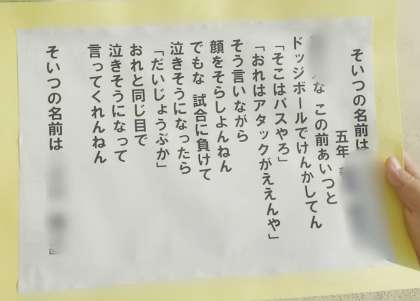 そいつの名前は
五年
な この前あいつと
ドッジボールでけんかしてん
「そこはパスやろ」
「おれはアタックがええんや」
そう言いながら
顔をそらしよんねん
でもな 試合に負けて
泣きそうになったら
「だいじょうぶか」
おれと同じ目で
泣きそうになって
言ってくれんねん
そいつの名前は